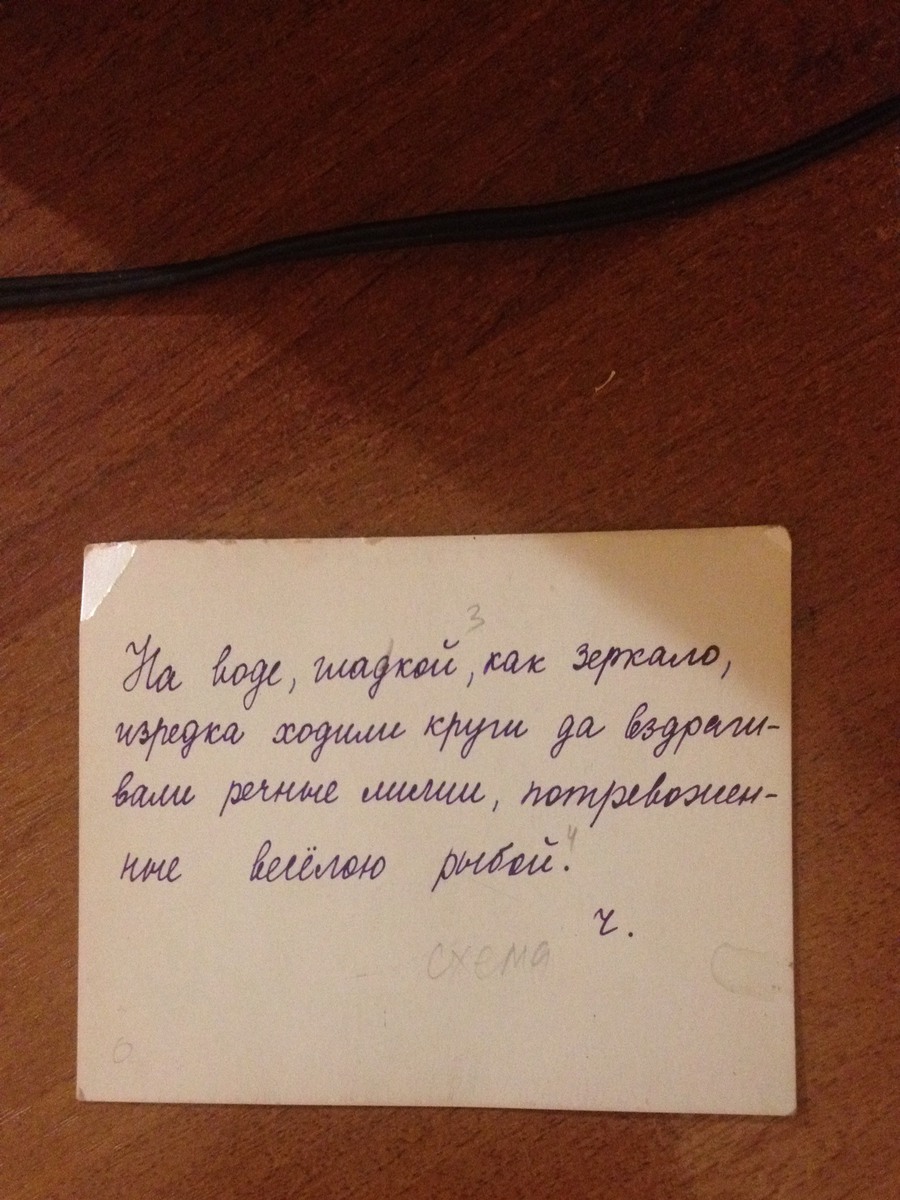 3
На воде, гладкой, как зеркало,
изредка ходили круги да вздраги-
вали речные лилии, потревожен-
4
ные весёлою рыбой.
Ч.
схема